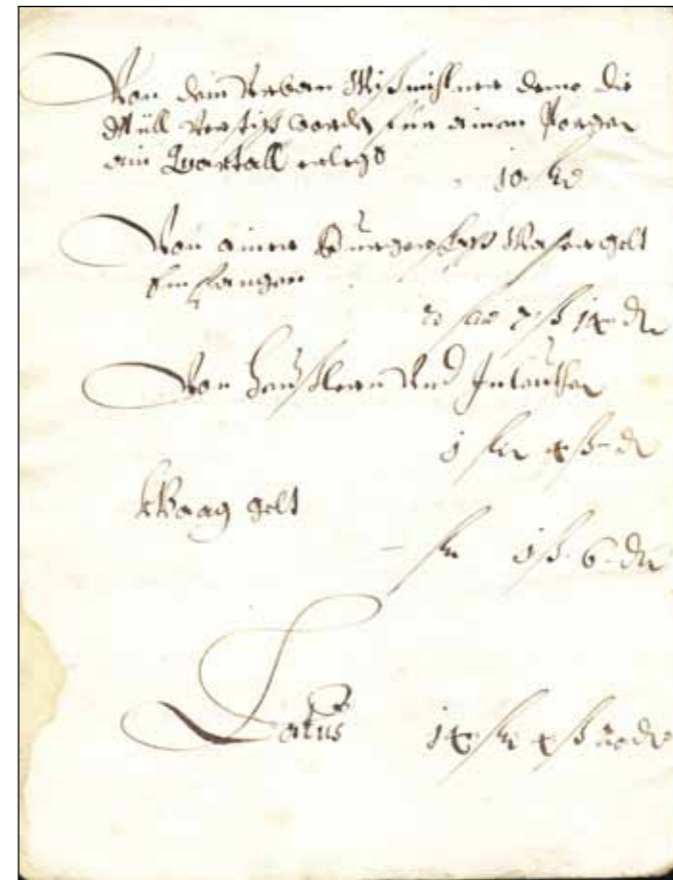 Von dem Urban deme die
Müll worden für ainen
ein Quartall erlegt
10 fl
Von ainer Burgerschafft Wasser gelt
Empfangen
2 fl 7 ß 14 dn
Von Heußlern Und Inleuthen
1 fl 4 ß - dn
Waag gelt
- fl 1 ß 6 dn
Latus 14 fl 4 ß 20 dn